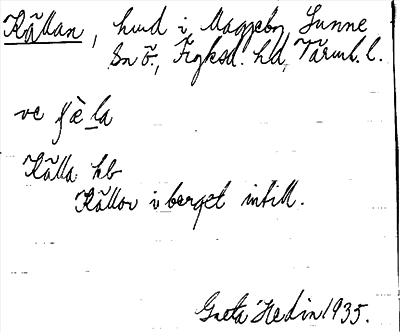 Källan, hmd i Maggeby, Sunne
Sn ö., Fryksd. hd, Värml. l.
ve
Källa hb
Källor i berget intill.
Greta Hedin 1935.